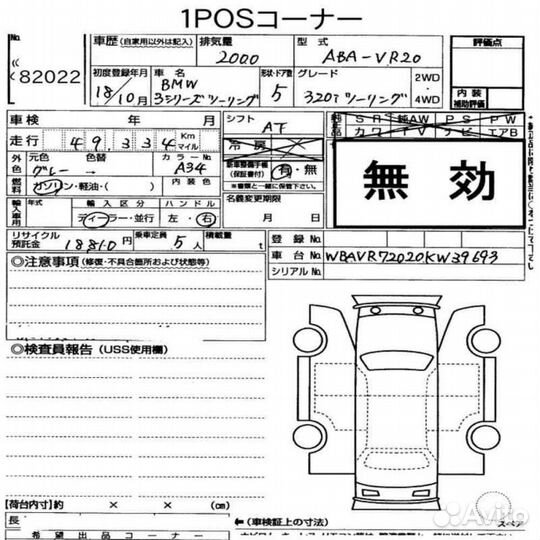 1POSコーナー
No.
82022
車歴 (自家用以外は記入) 排気量 型式
2000 ABA-VR20
評価点
初度登録年月 車名 形状・ドア数 グレード
18/10月 BMW 3シリーズツーリング 5 320i ツーリング
2WD
・
4WD
内装
補助評価
車検 年 月
シフト AT
走行 49,334 Km マイル
冷房
純正品 SR 純AW PS PW
カワ TV ナビ エアB
外色 元色 色替 カラーNo.
グレー → A34
新車整備手帳
(保証書付) 有・無
※書類と一緒に保管下さい
無効
燃料 ガソリン・軽油・( ) 内装色
名義変更期限
月 日
輸入車用 年式 輸入区分 ハンドル
ディーラー・並行 左・右
リサイクル預託金 18810円 乗車定員 5人 積載量 t
登録No.
車台No. WBAVR72020KW39693
シリアルNo.
◎注意事項 (修復・不具合個所および状態等)
◎検査員報告 (USS使用欄)
[荷台内寸]約 × × (cm)
長
(車検証上の寸法)
希望出品コーナー
スペア
Avito